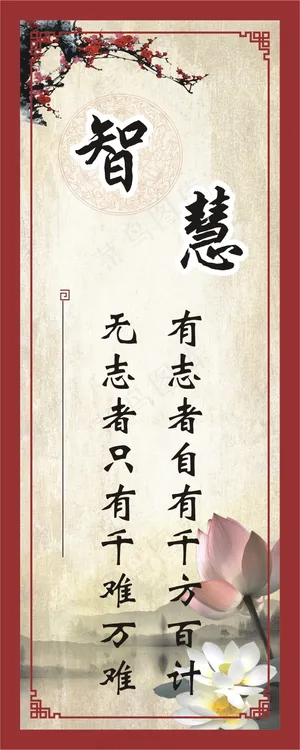 智慧
有志者自有千方百计
无志者只有千难万难